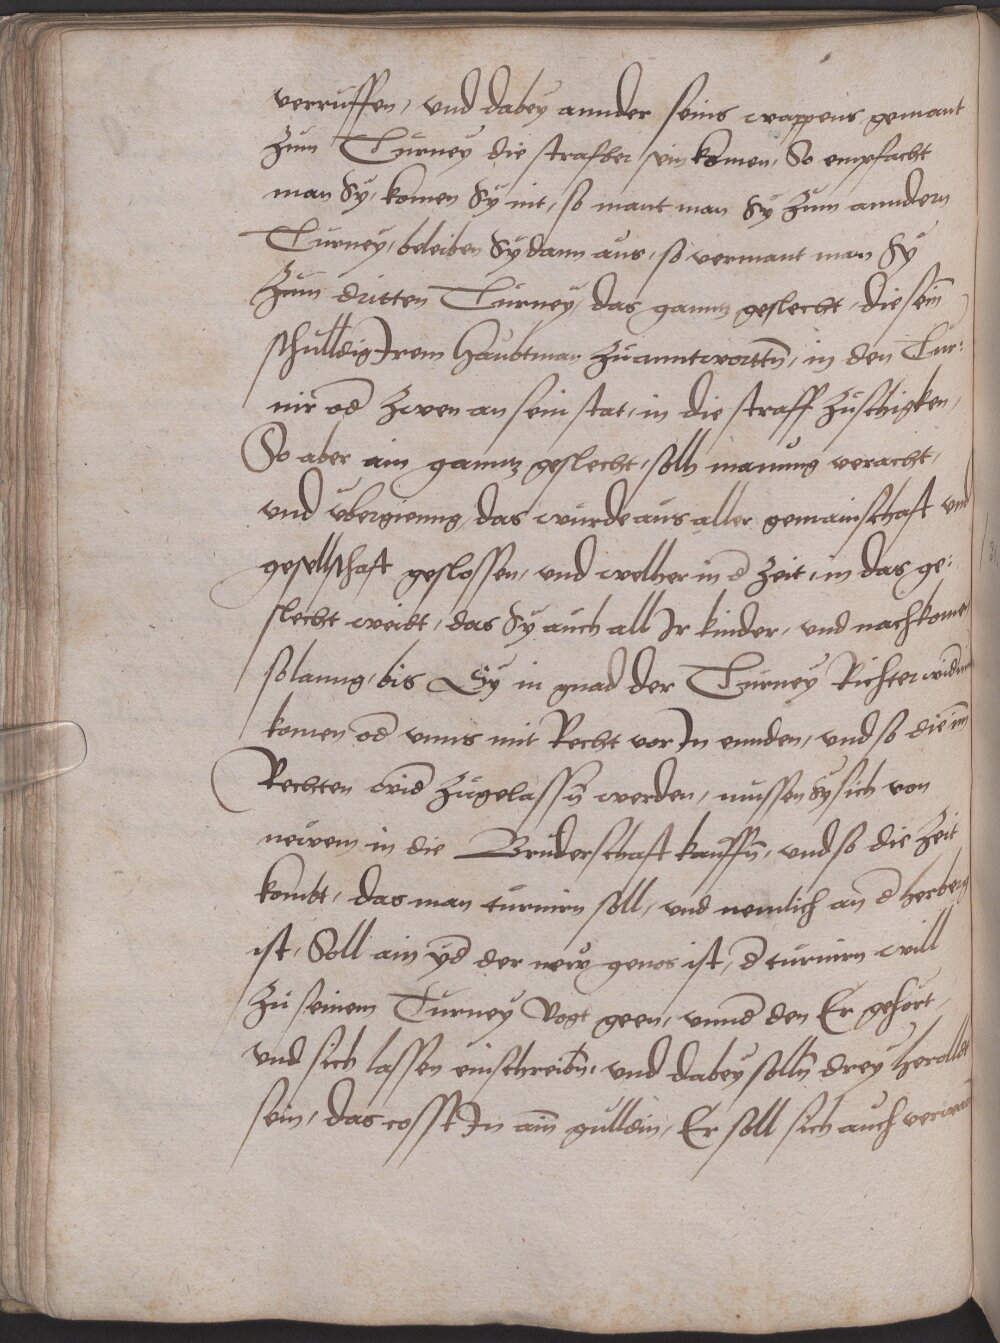 verruffen, vnd dabey annder seins wappens gemant
zum Turney die strafber sein komen, So empfacht
man Sy, komen Sy nit, so mant man Sy zum anndern
Turney, beleiben Sy dann aus, so vermant man Sy
zum dritten Turney, das ganntz geslecht, die sein
schulldig Irem haubtman zuanntwortten, in den Tur:
nir od zwen an sein stat, in die straff zuschigken,
So aber ain ganntz geslecht, solh manung veracht,
vnd vbergienng, das wurde aus aller gemainschaft vnd
gesellschaft geslossen, vnd welher in d Zeit, in das ge:
slecht weibt, das Sy auch all Ir kinder, vnd nachkomen
solanng, bis Sy in gnad der Turney Richter widerumb
komen od vnns mit Recht vor In ennden, vnd so die im
Rechten wid zugelassen werden, mussen Sy sich von
newem in die Bruderschaft kauffen, vnd so die Zeit
kombt, das man turnirn soll, vnd nemlich an d herberg
ist, Soll ain yd der new genos ist, d turnirn will
zu seinem Turney Vogt geen, vnnd den Er gehort,
vnd sich lassen einschreiben, vnd dabey sollen drey heralldt
sein, das cosst In ain gulldin, Er soll sich auch